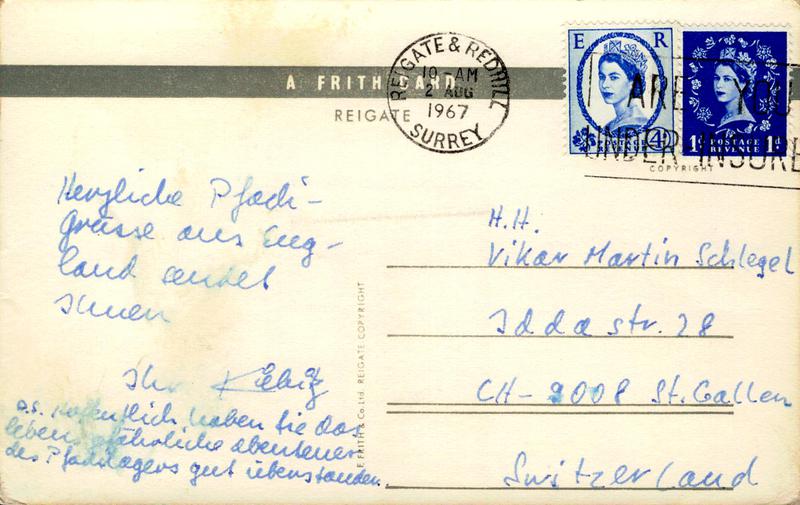 A FRITH CARD
REIGATE
REIGATE & REDHILL
10 AM
2 AUG
1967
SURREY
E R
4D
POSTAGE
REVENUE
1D POSTAGE 1D
REVENUE
ARE YOU
UNDER-INSURE
COPYRIGHT
Herzliche Pfadi-
grüsse aus Eng-
land sendet
Ihnen
Ihr Kiebitz
P.S. Hoffentlich haben Sie das
lebensgefährliche Abenteuer
des Pfadilagers gut überstanden.
F. FRITH & Co. Ltd. REIGATE COPYRIGHT
H.H.
Vikar Martin Schlegel
Iddastr. 28
CH-9008 St. Gallen
Switzerland